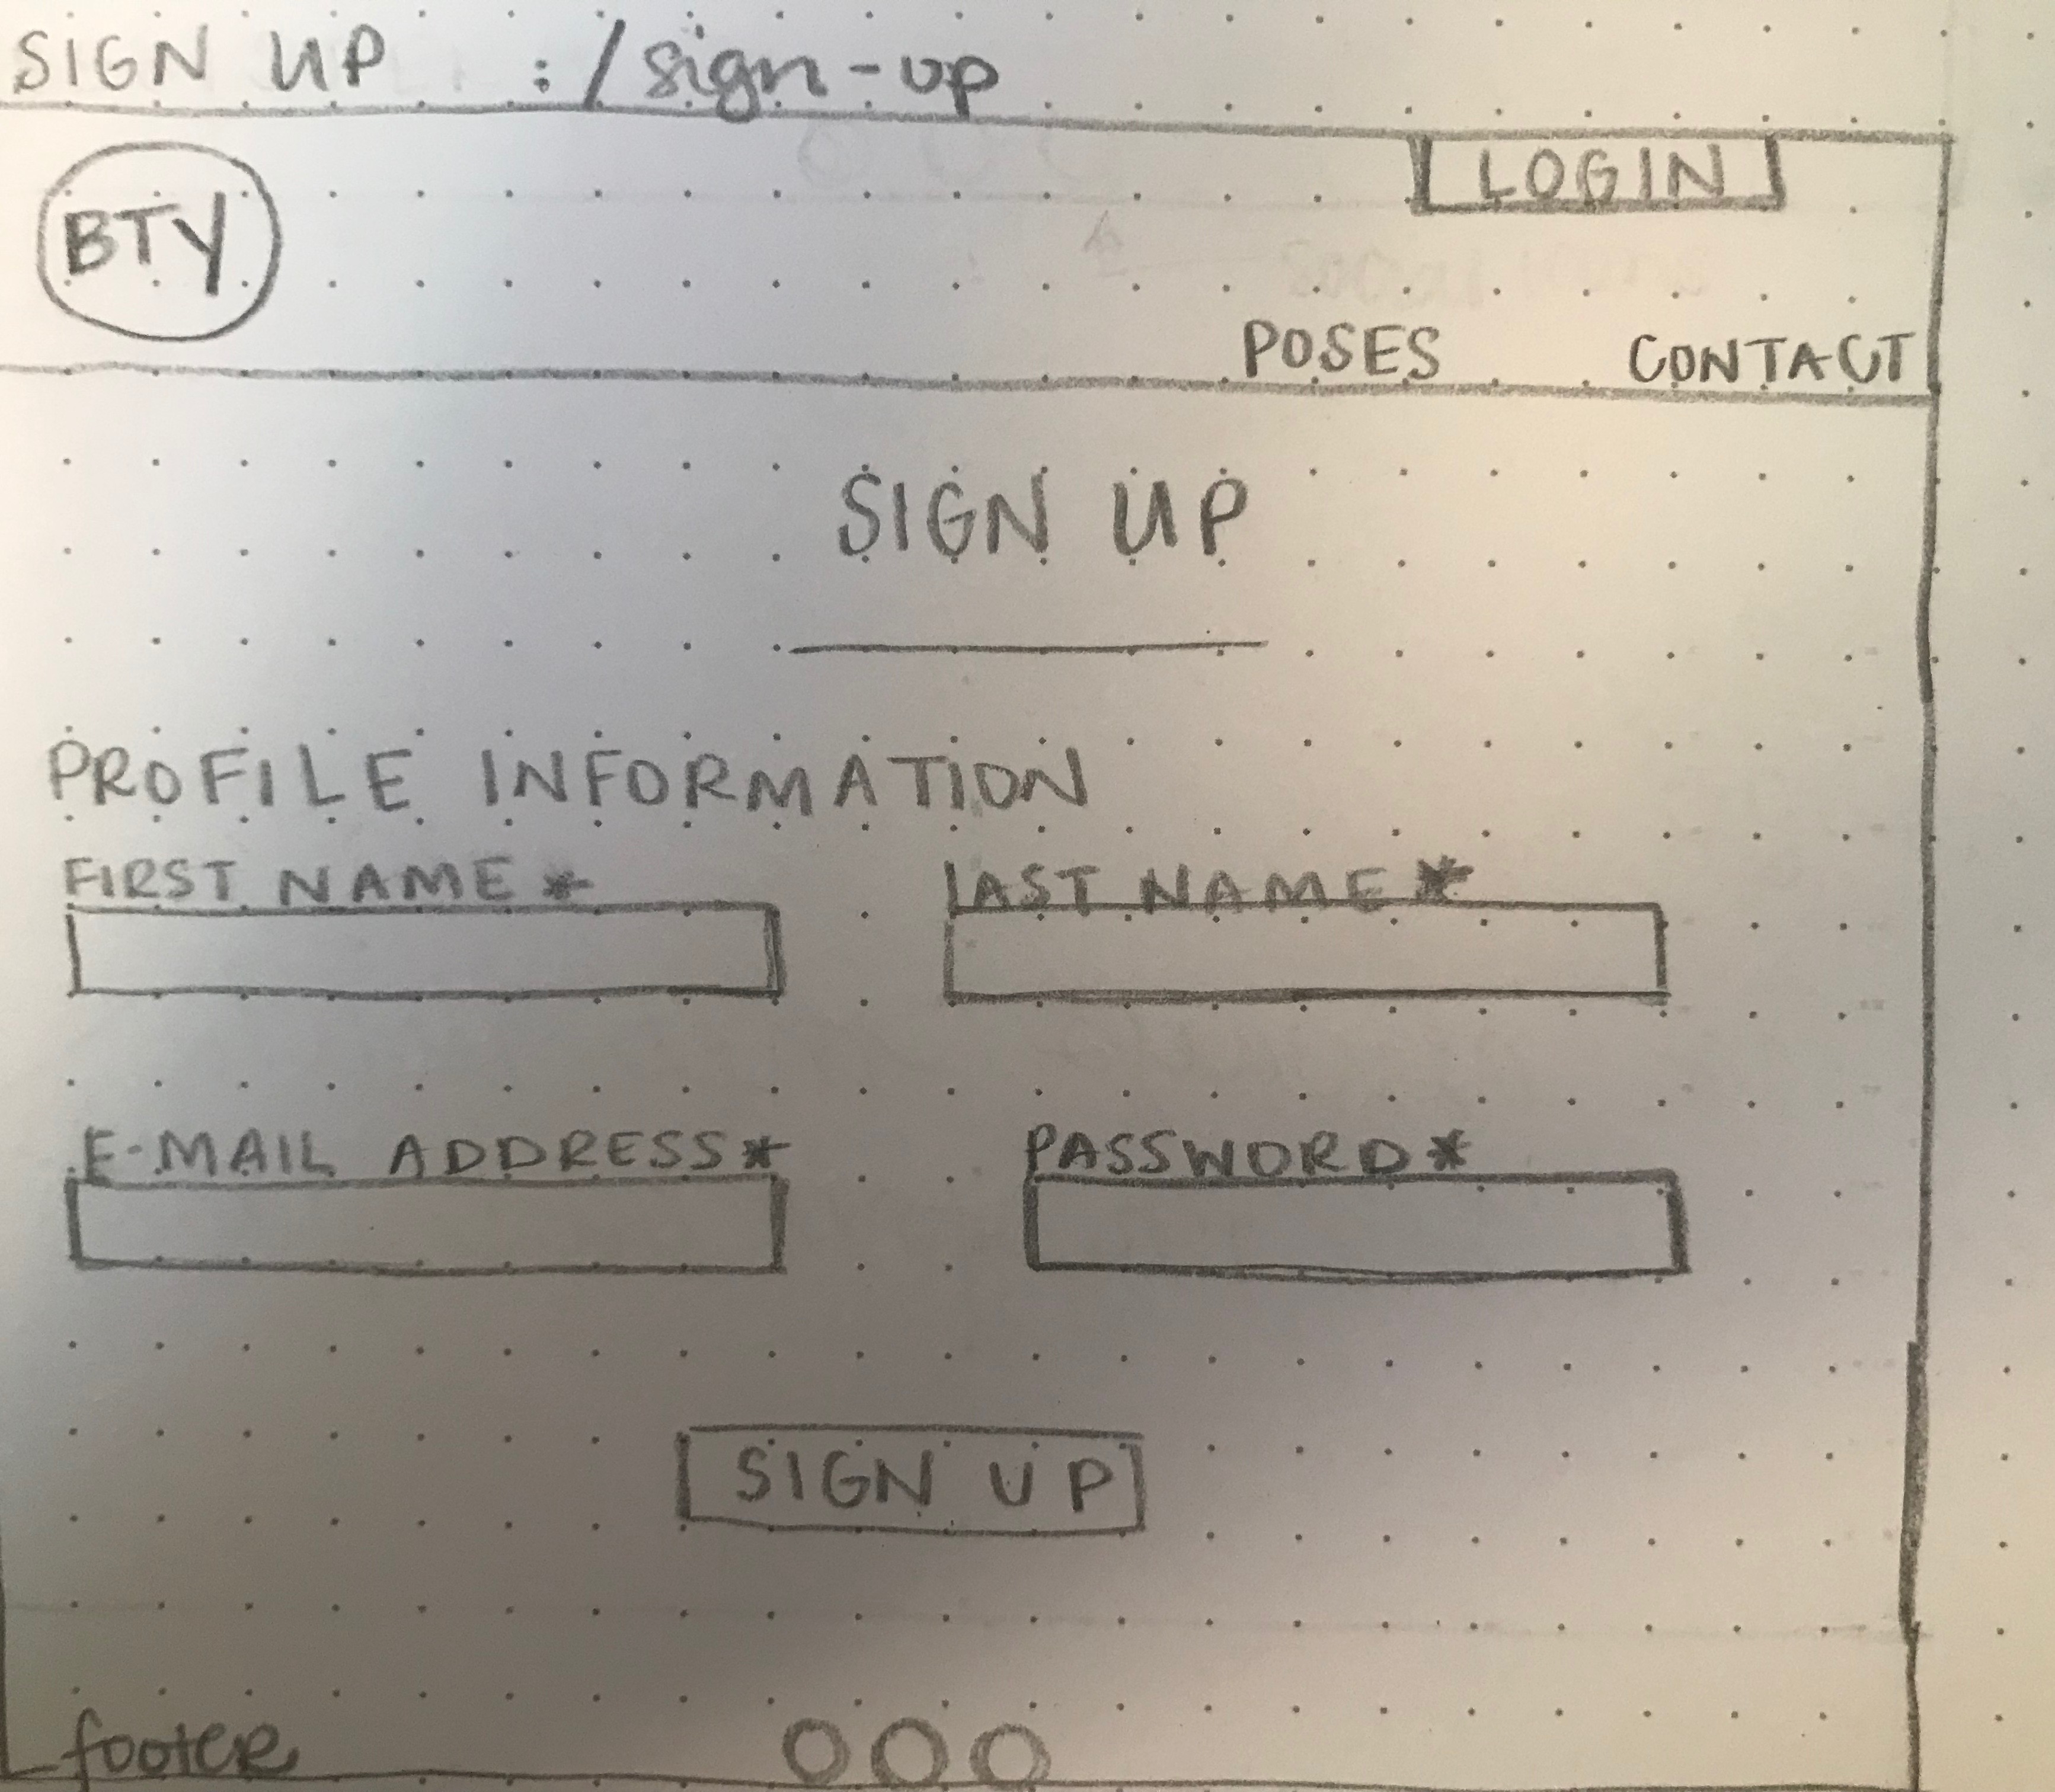 SIGN UP :/sign-up
LOGIN
BTY
POSES CONTACT
SIGN UP
PROFILE INFORMATION
FIRST NAME* LAST NAME*
E-MAIL ADDRESS* PASSWORD*
SIGN UP
footer